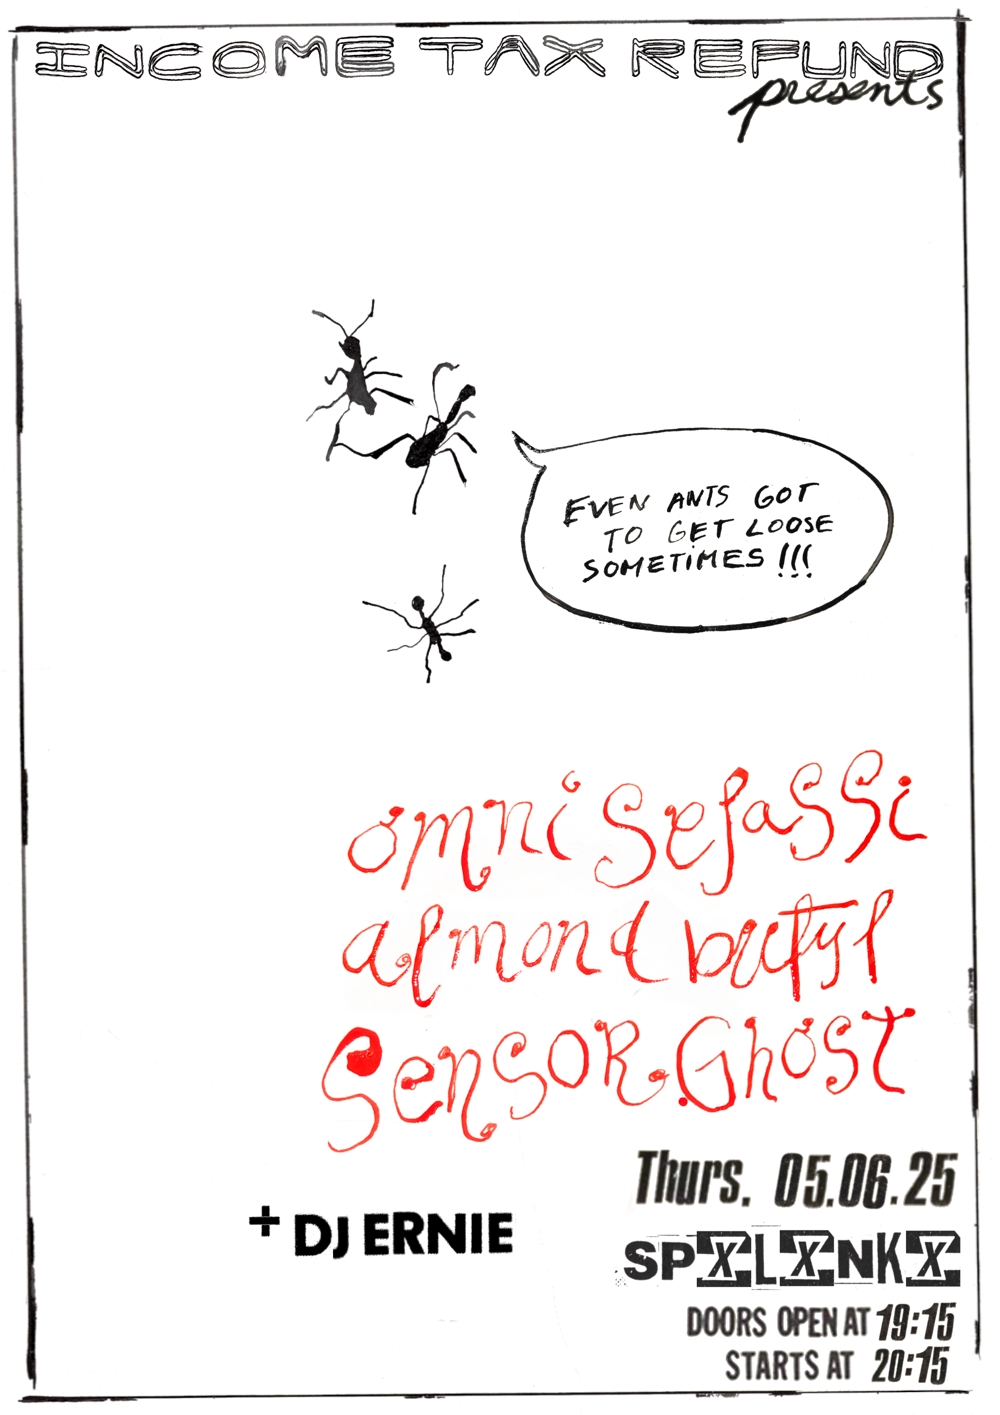 INCOME TAX REFUND
presents
EVEN ANTS GOT
TO GET LOOSE
SOMETIMES !!!
omni selassi
almond butyl
Sensor.Ghost
Thurs. 05.06.25
+ DJ ERNIE
SPXLXNKX
DOORS OPEN AT 19:15
STARTS AT 20:15